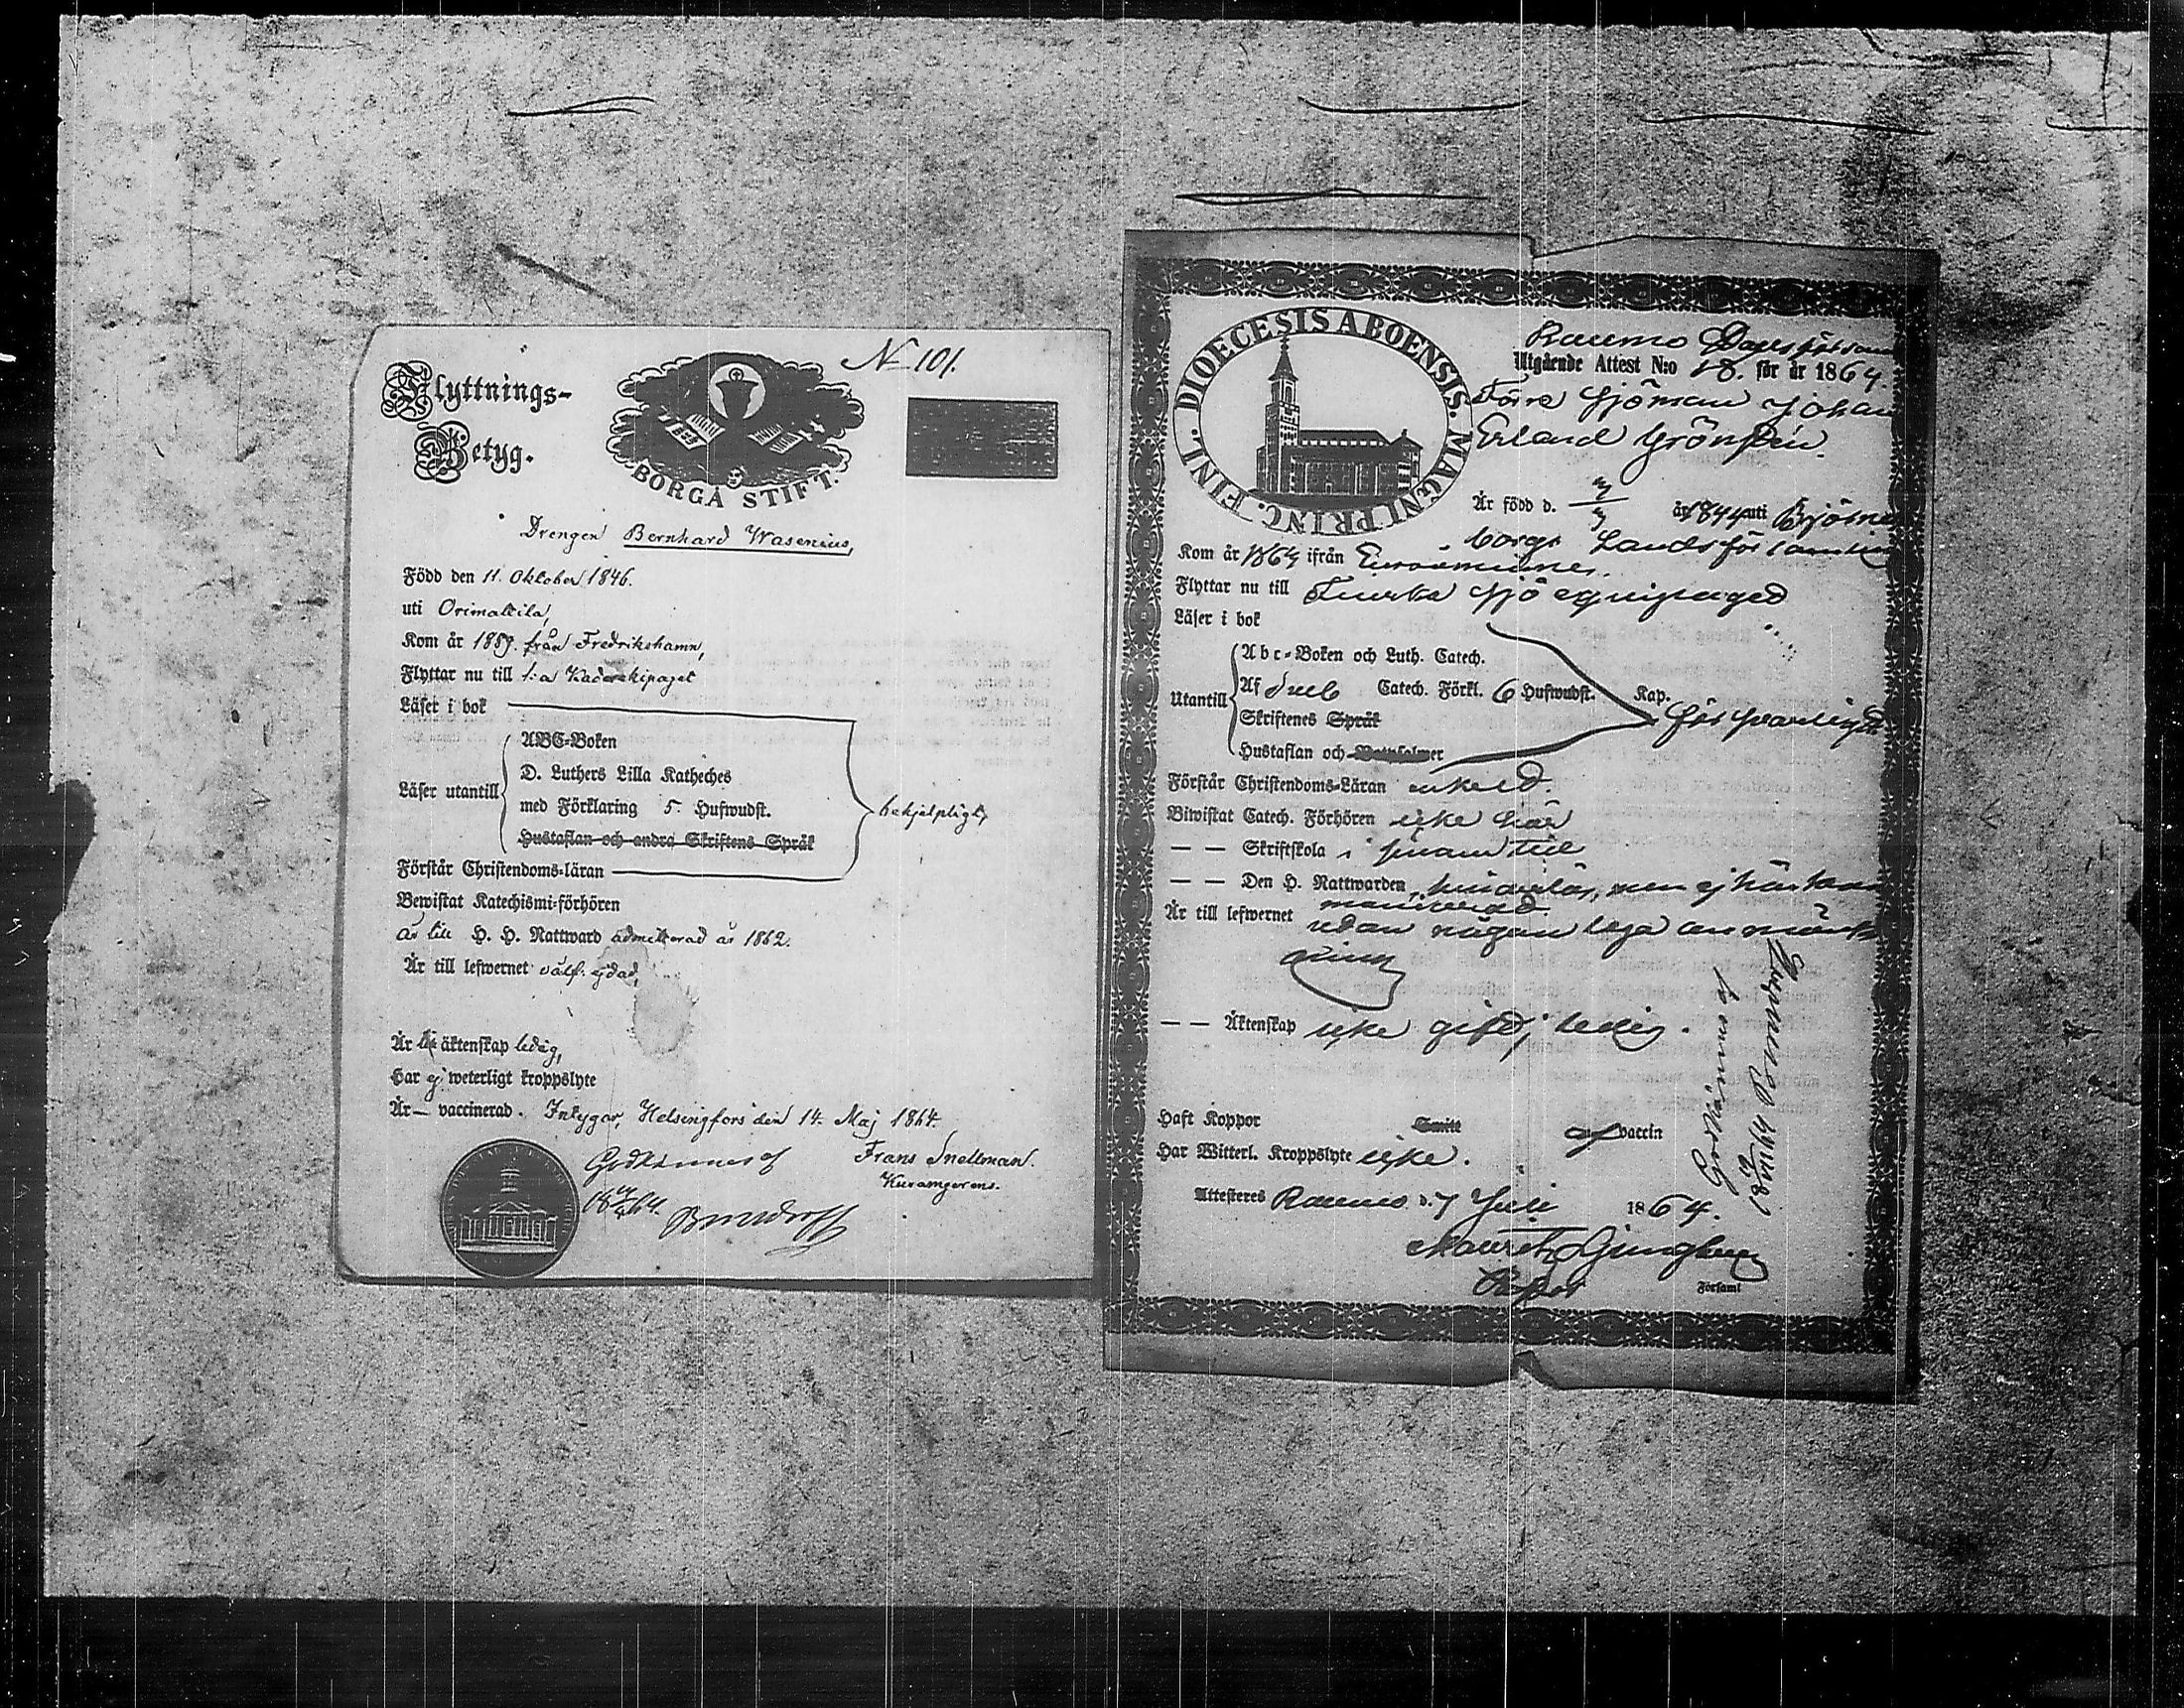 N 101.
Flyttnings-
Betyg.
BORGÅ STIFT.
Drengen Bernhard Wasenius,
Född den 11. Oktober 1846.
uti Orimattila,
Kom år 1859. från Fredrikshamn,
Flyttar nu till 1:a
Läser i bok
Läser utantill
ABC-Boken
D. Luthers Lilla Katheches
med Förklaring 5. Hufwudst.
Hustaflan och andra Skriftens Språk
behjelpligt,
Förstår Christendoms-läran
Bewistat Katechismi-förhören
är till H. H. Nattward admitterad år 1862.
Är till lefwernet välf. ejdad,
Är till äktenskap ledig,
Har ej weterligt kroppslyte
Är — vaccinerad. Intygar, Helsingfors den 14. Maj 1864.
Godkännes af
Frans Snellman.
DIOECESIS ABOENSIS. MAGNI PRINC. FINL.
Raumo
Utgående Attest N:o 18. för år 1864.
Förre Sjöman Johan
Erland Grönstén.
Är född d. år 1844 uti Björne
borgs Landsförsamling
Kom år 1864 ifrån Euraåminne.
Flyttar nu till Finska Sjö equipaged
Läser i bok
Utantill
Abc-Boken och Luth. Catech.
Af Catech. Förkl. 6 Hufwudst. Kap.
Skriftenes Språk
Hustaflan och
försvarligt
Förstår Christendoms-Läran enkeld.
Biwistat Catech. Förhören icke här
— — Skriftskola i sinom tid
— — Den H. Nattwarden men ej här kom
municerad.
Är till lefwernet utan någon laga anmärk
ning
— — Äktenskap icke gifd, ledig.
Haft Koppor Smitt af vaccin
Har Witterl. Kroppslyte icke.
Attesteres Raumo d. 7 Juli 1864.
Godkännes af
Församl